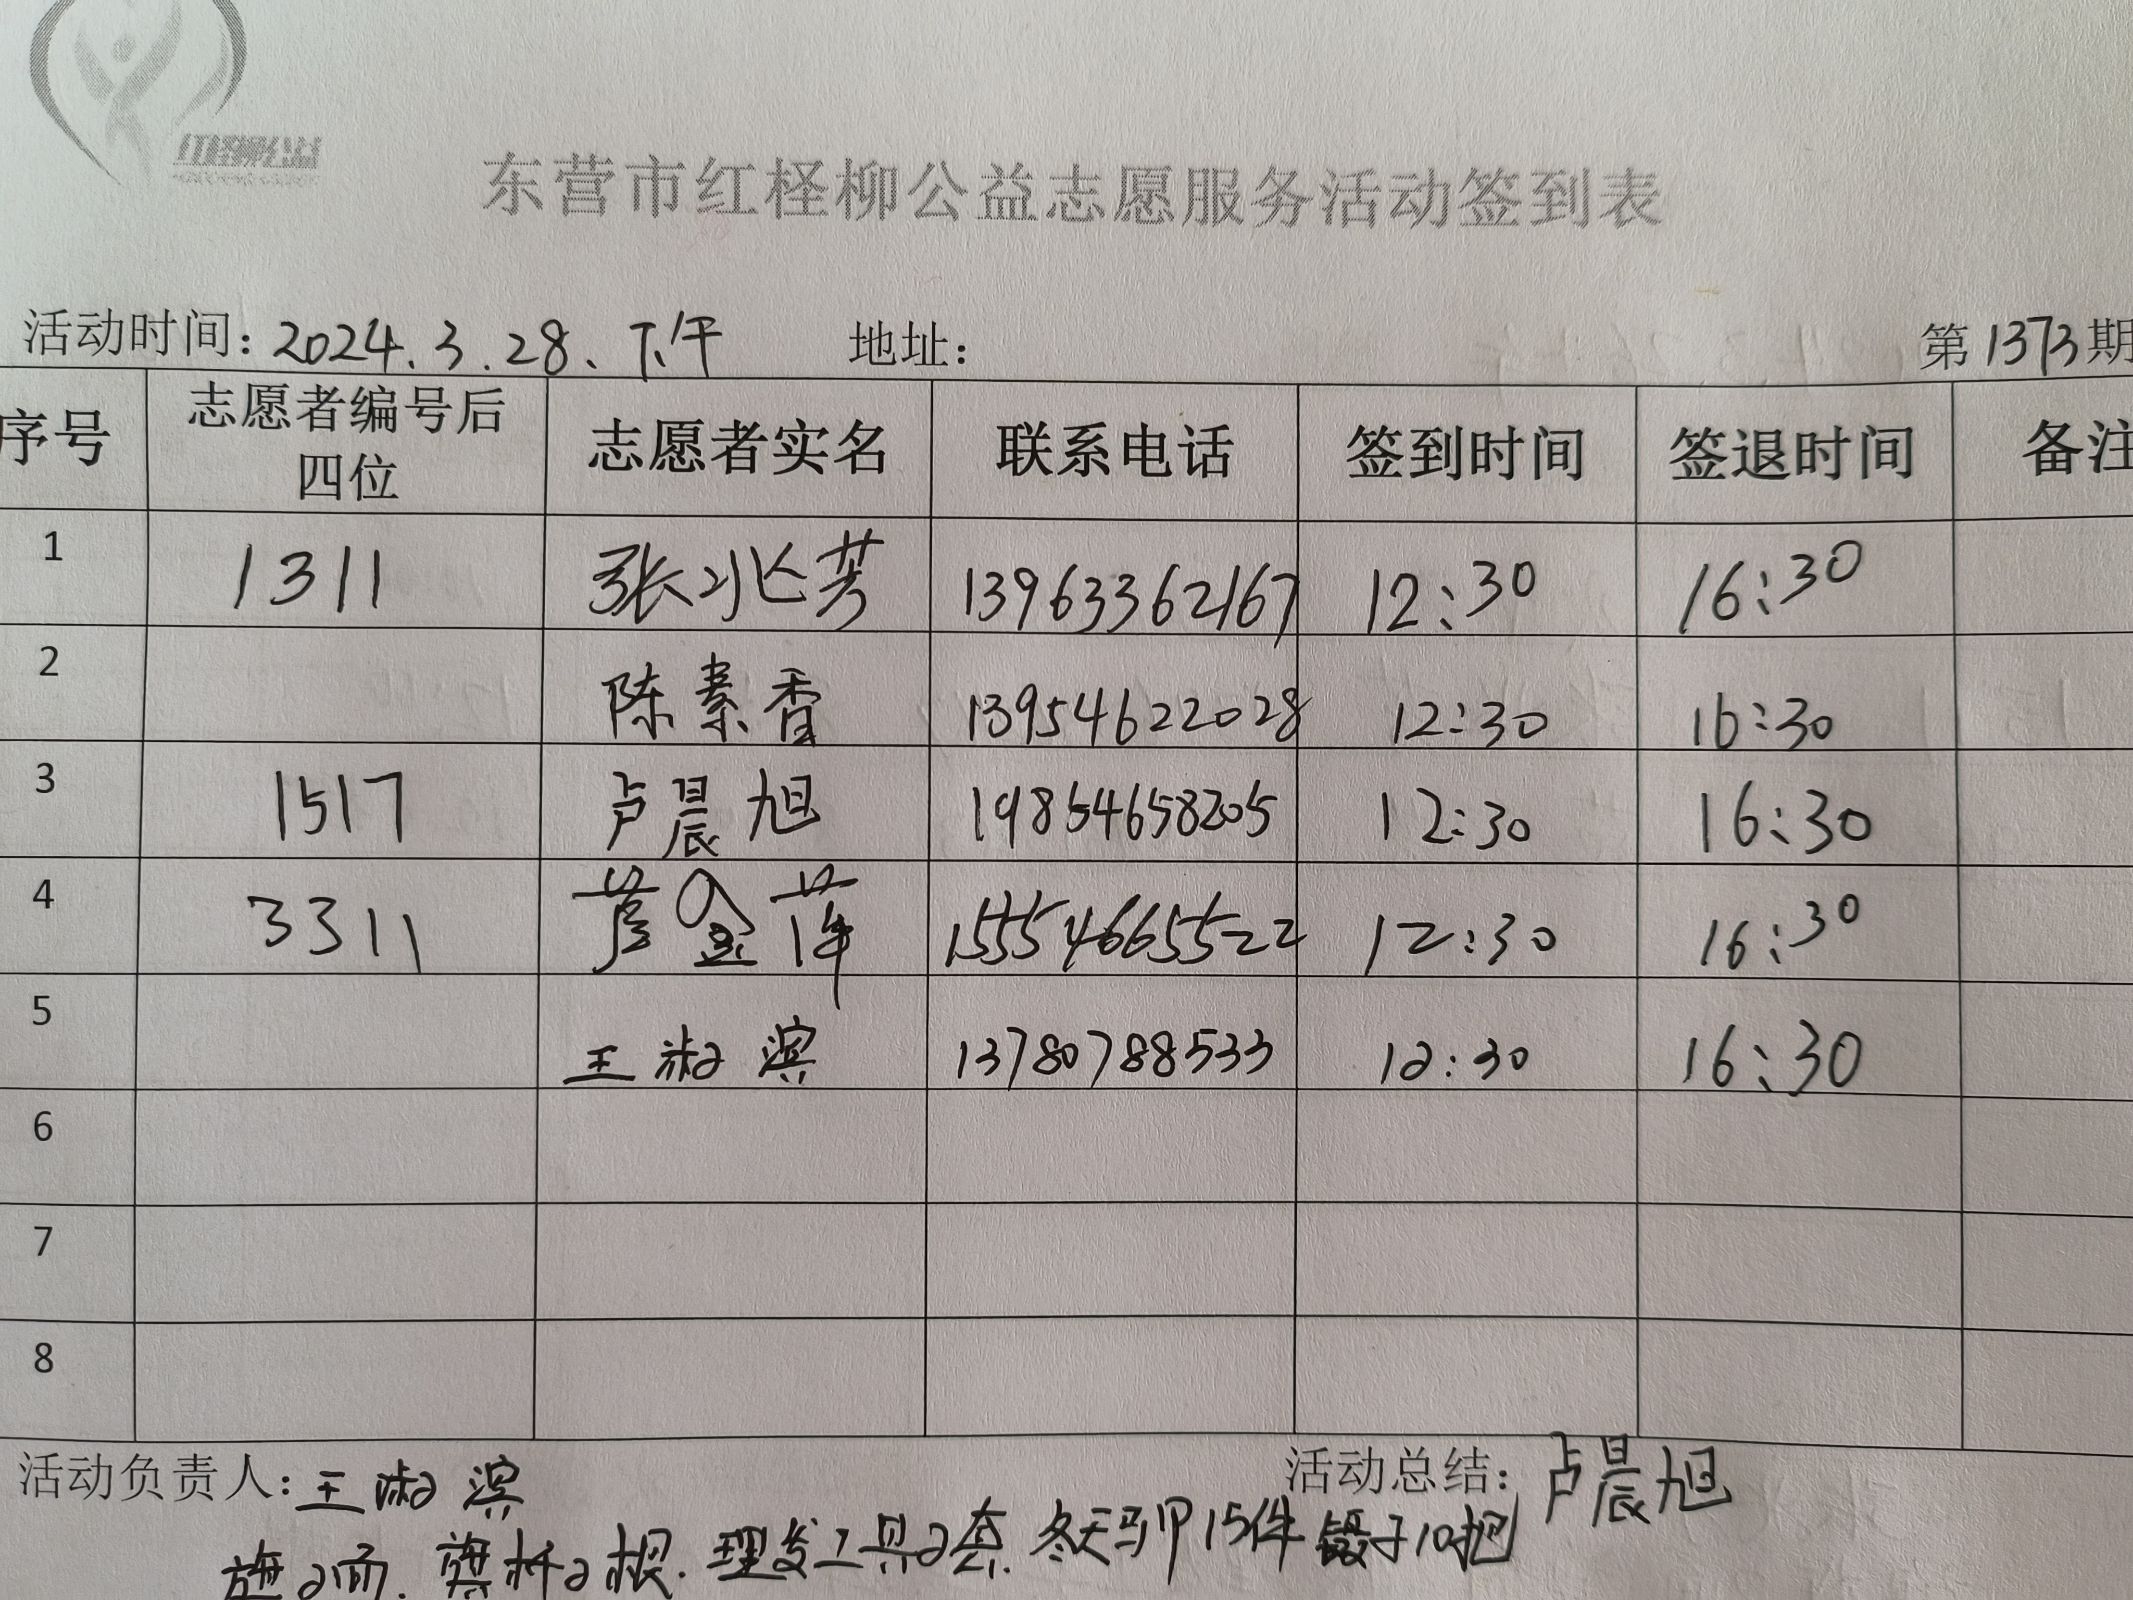 红柽柳公益
东营市红柽柳公益志愿服务活动签到表
活动时间：2024.3.28、下午 地址： 第1373期
序号 志愿者编号后四位 志愿者实名 联系电话 签到时间 签退时间 备注
1 1311 张 芳 13963362167 12:30 16:30
2 陈素香 13954622028 12:30 16:30
3 1517 卢晨旭 19854658205 12:30 16:30
4 3311 金莲 15554665522 12:30 16:30
5 王淑滨 13780788533 12:30 16:30
6
7
8
活动负责人：王淑滨 活动总结：卢晨旭
旗2面.旗杆2根.理发工具2套.冬天马甲15件 镊子10把